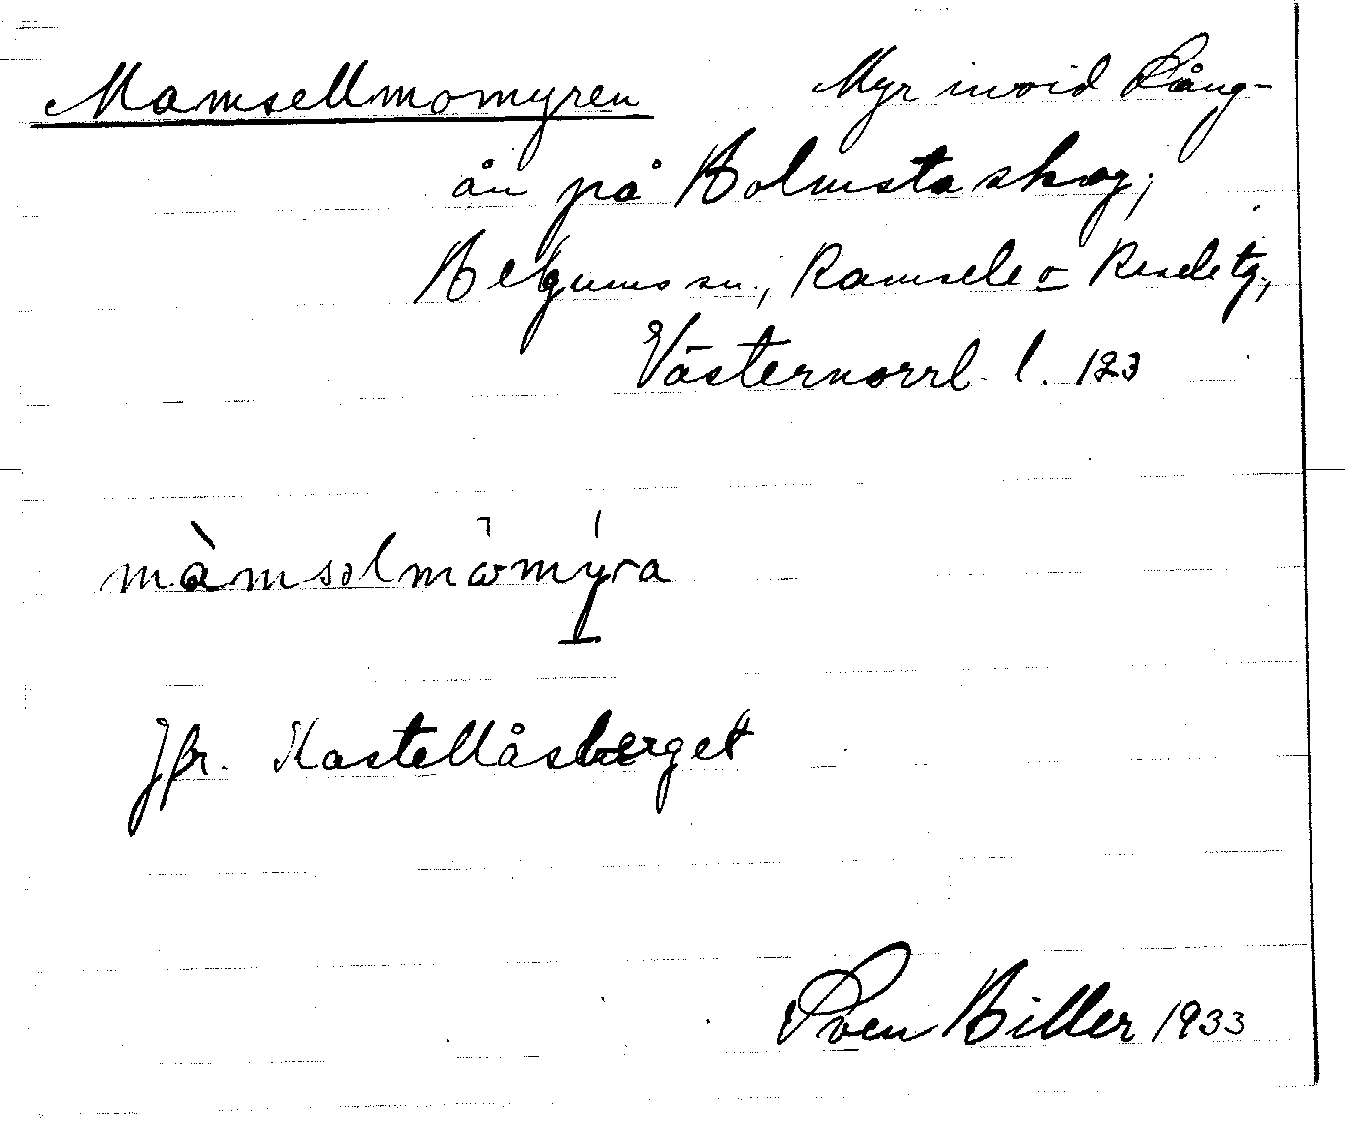 Mamsellmomyren Myr invid Lång-
ån på Holmsta skog,
Helgums sn., Ramsele o Resele tg,
Västernorrl. l. 123
màmsəlmωmýra
Jfr. Kastellåsberget
Sven Hiller 1933